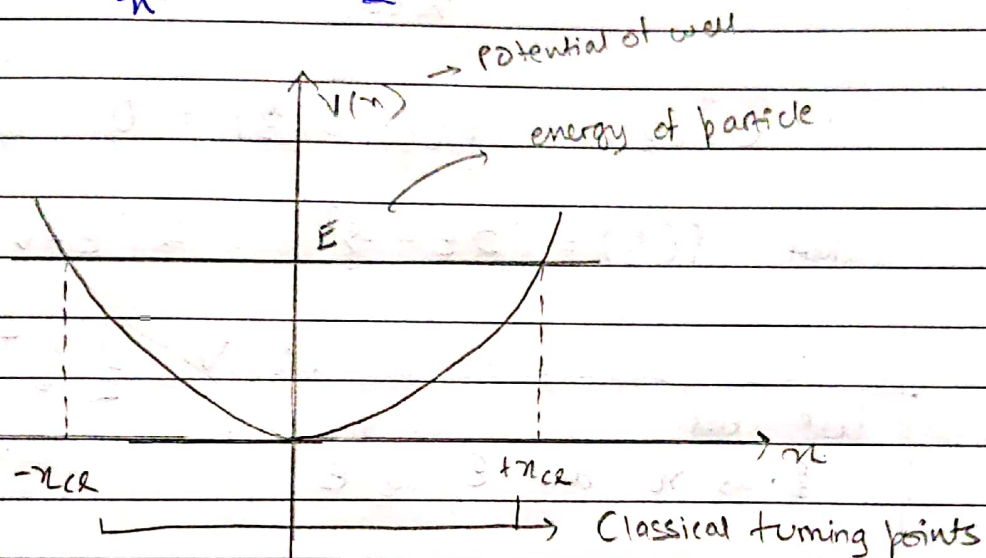 → Potential of well
V(x)
energy of particle
E
x
-x_cl +x_cl
→ Classical turning points